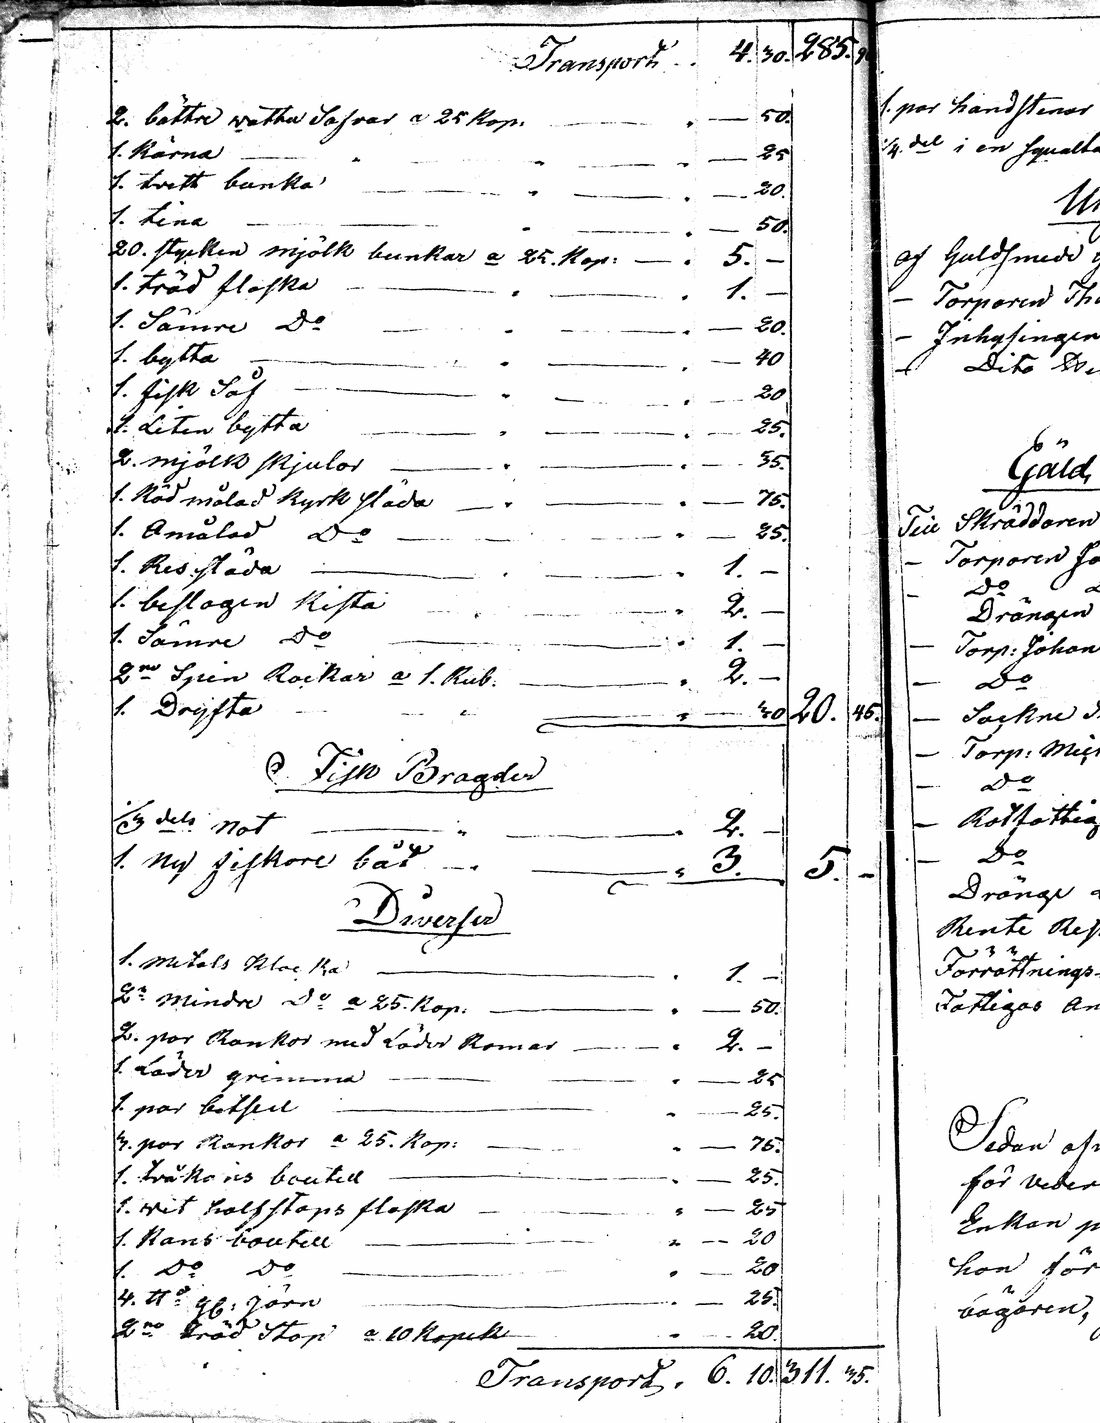 Transport . . 4. 30. 285. 90
2. bättre watten Såssar a 25 Kop. — " — 50.
1. Kärna — " " " — 25
1. tvätt bunka — " " — 20.
1. tina — " " — 50.
20. stycken mjölk bunkar a 25. Kop: — " 5. —
1. träd flaska — " " 1. —
1. Sämre Do — " " — 20.
1. bytta — " " — 40
1. fisk Så — " " — 20
1. Liten bytta — " " — 25.
2. mjölk skjulor — " " — 35.
1. Röd målad Kyrk släda — " " — 75.
1. Omålad Do — " " — 25.
1. Res släda — " " 1. —
1. beslagen Kista " " 2. —
1. Sämre Do — " 1. —
2ne Spin Rockar a 1. Rub. — " 2. —
1. Dryfta — " " — 30 20. 45.
Fisk Bragder
1/3 dels not — " " 2. —
1. ny fiskare båt — " " 3. 5. —
Diverser
1. metals Klocka — " 1. —
2ne mindre Do a 25. Kop. — " — 50.
2. par Rankor med Läder Romar — " 2. —
1. Läder grimma — " — 25
1. par betsel — " — 25.
3. par Rankor a 25. Kop: — " — 75.
1. tvåkans boutell — " — 25.
1. wit halfstops flaska — " — 25
1. Kans boutell — " — 20
1. Do Do — " — 20
4. gb: Järn — " — 25.
2ne träd Stop a 10 Kopek — " — 20.
Transport . 6. 10. 311. 35.
1. par handstenar
1/4. del i en squalta
af Guldsmede
— Torparen
— Inhysingen
— Dito
Gäld,
Till Skräddaren
— Torparen
— Do
Drängen
— Torp: Johan
— Do
— Sockne
— Torp:
— Do
— Rotfattig
— Do
Dränge
Rente
Förrättnings-
Fattigas
Sedan
för
Enkan
hon för
bägaren,